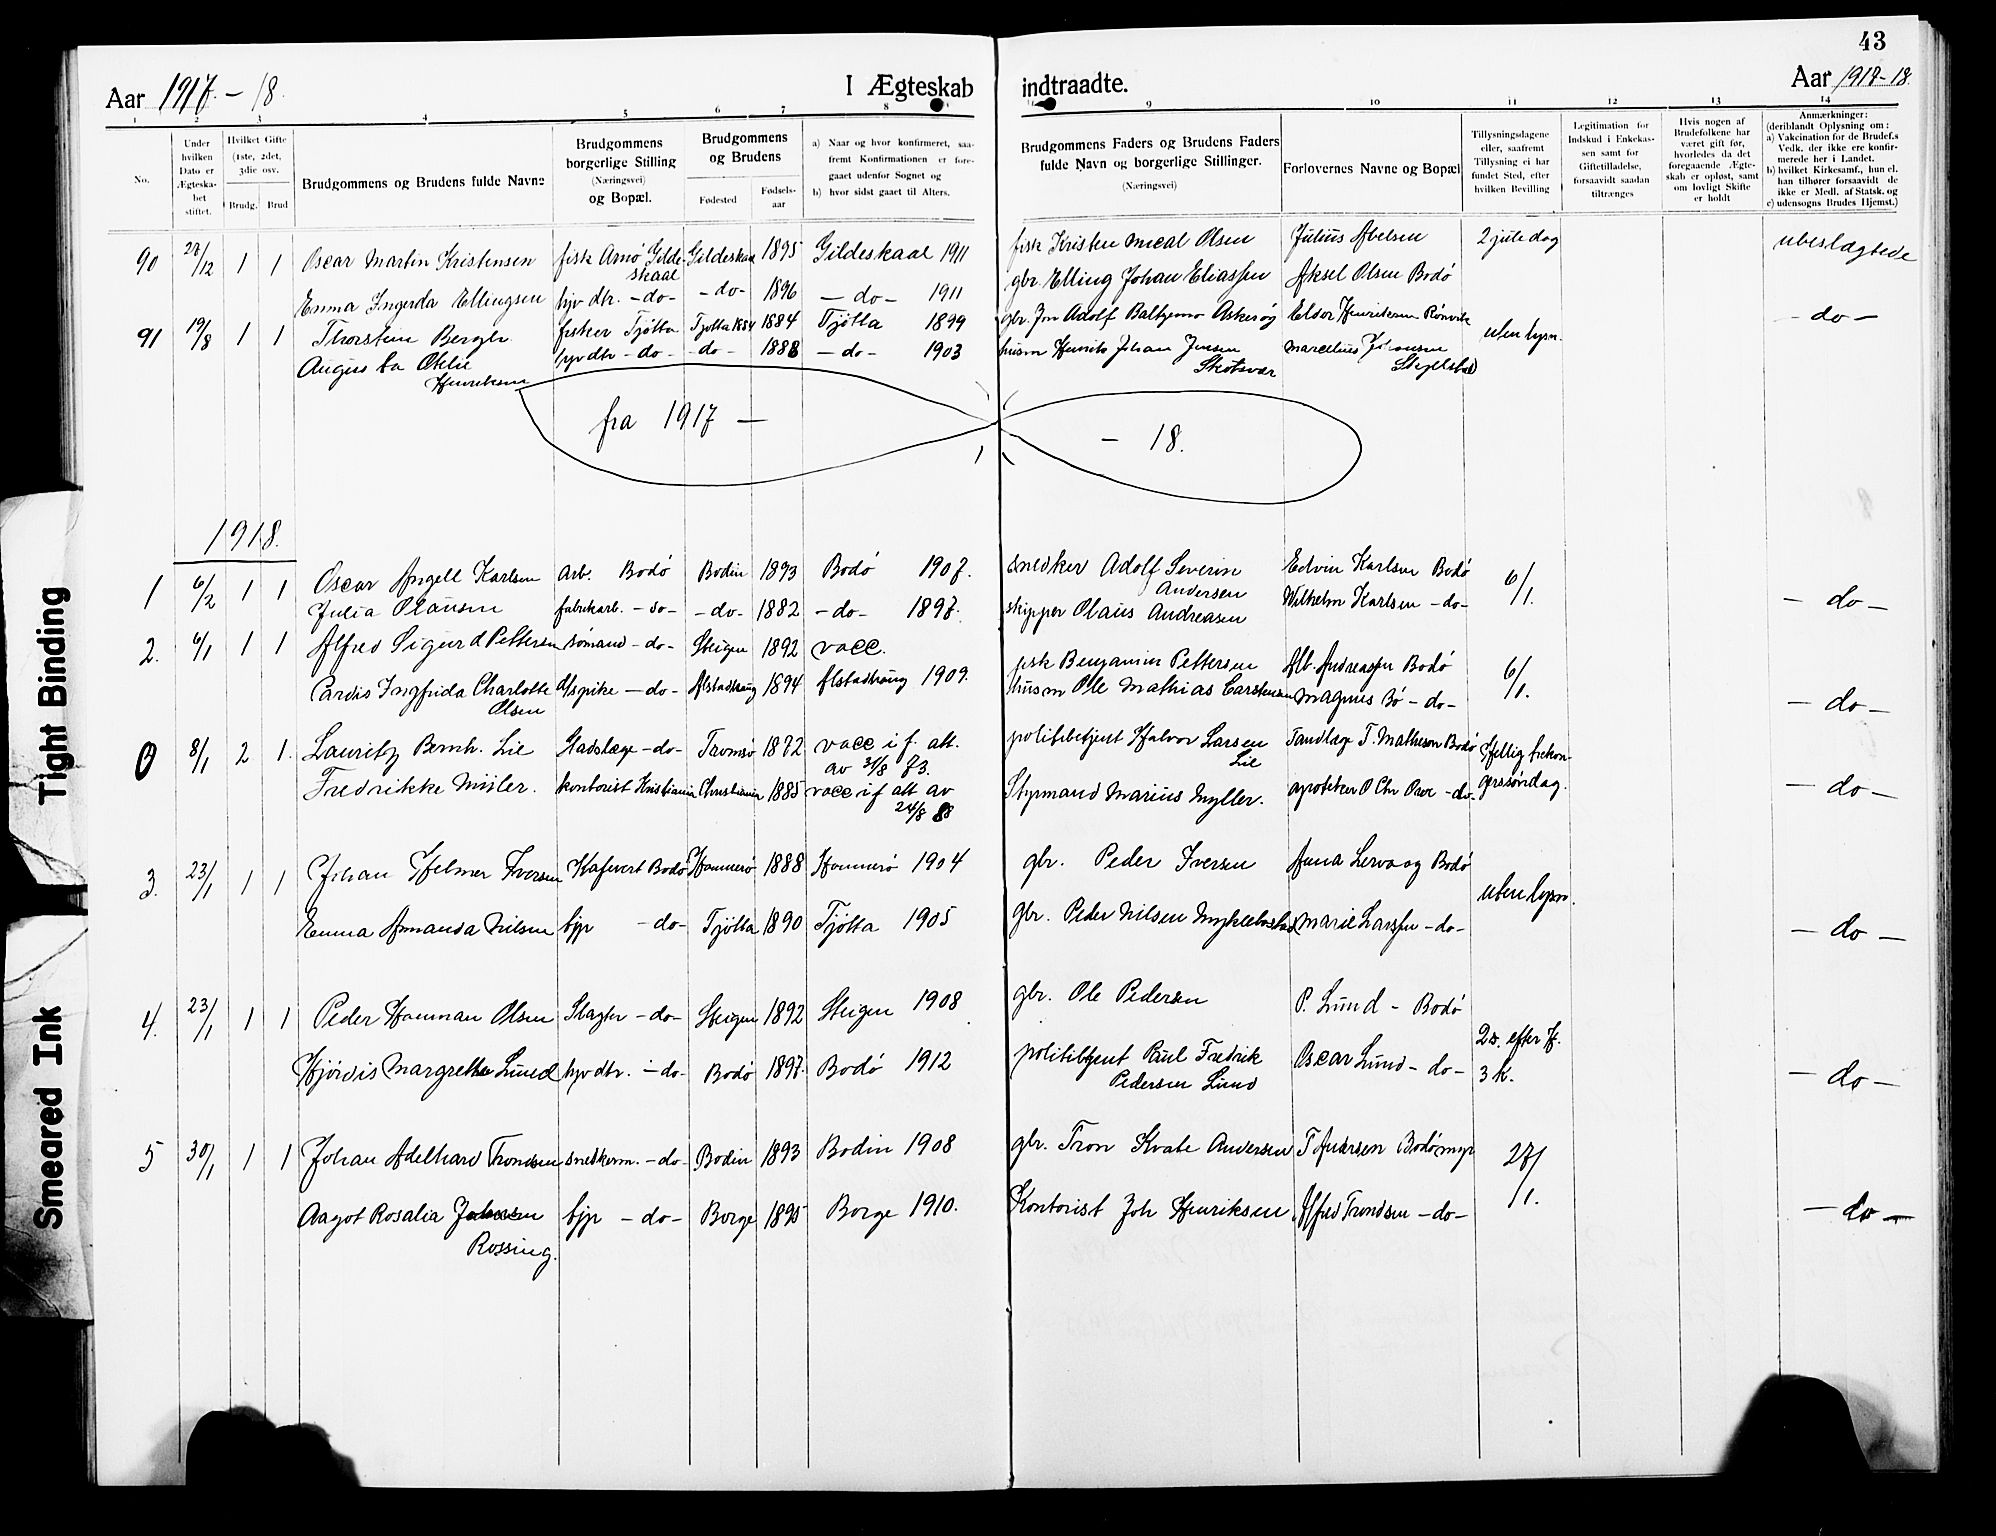 43
Aar 1917. - 18.
I Ægteskab indtraadte.
Aar 1917-18.
1 2 3 4 5 6 7 8 9 10 11 12 13 14
No.
Under hvilken Dato er Ægteska-bet stiftet.
Hvilket Gifte (1ste, 2det, 3die osv.
Brudg. Brud
Brudgommens og Brudens fulde Navne
Brudgommens borgerlige Stilling (Næringsvei) og Bopæl.
Brudgommens og Brudens
Fødested
Fødsels-aar
a) Naar og hvor konfirmeret, saa-fremt Konfirmationen er fore-gaaet udenfor Sognet og
b) hvor sidst gaaet til Alters.
Brudgommens Faders og Brudens Faders fulde Navn og borgerlige Stillinger.
(Næringsvei)
Forlovernes Navne og Bopæl
Tillysningsdagene eller, saafremt Tillysning ei har fundet Sted, efter hvilken Bevilling
Legitimation for Indskud i Enkekas-sen samt for Giftetilladelse, forsaavidt saadan tiltrænges
Hvis nogen af Brudefolkene har været gift før, hvorledes da det foregaaende Ægte-skab er opløst, samt om lovligt Skifte er holdt
Anmærkninger: (deriblandt Oplysning om:
a) Vakcination for de Brudef.s Vedk. der ikke ere konfir-merede her i Landet.
b) hvilket Kirkesamf., hun el. han tilhører forsaavidt de ikke er Medl. af Statsk. og
c) udensogns Brudes Hjemst.)
90 27/12 1 1 Oscar Martin Kristensen fisk Arnø Gilde-skaal Gildeskaal 1895 Gildeskaal 1911 fisk Kristen Mical Olsen Julius Abelsen 2 juledag ubeslægtede
Emma Ingerda Ellingsen hjv dtr. -do- -do- 1896 -do- 1911 gbr. Elling Johan Eliassen Aksel Olsen Bodø
91 19/8 1 1 Thorstein Bergh fisker Tjøtta Tjøtta 1884 1884 Tjøtta 1899 gbr. Adolf Askerøy Henriksen -do-
Augusta Otelie Henriksen hjv dtr -do- -do- 1888 -do- 1903 husm Henrik Johan Jensen Skotsvær Marcelius Johansen uten lysn.
fra 1917 - - 18.
1918.
1 6/2 1 1 Oscar Angell Karlsen Arb. Bodø Bodin 1893 Bodø 1907. snedker Adolf Severin Andersen Edvin Karlsen Bodø 6/1.
Julia Olausen fabrikarb. -do- -do- 1882 -do- 1897. skipper Olaus Andreasen Wilhelm Karlsen -do- -do-
2. 6/1 1 1 Alfred Sigurd Pettersen sømand -do- Steigen 1892 vacc. fisk Benjamin Pettersen Alb. Andreassen Bodø 6/1.
Cardis Ingfrida Charlotte Olsen -do- Alstadhaug 1894 Alstadhaug 1909. husm Ole Mathias Carstensen Magnus Bø -do- -do-
0 8/1 2 1. Lauritz Bernh. Lie Stadslæge -do- Tromsø 1872 vacc i f. att. av 31/8 73. politibetjent Halvor Larsen Lie Tandlæge T. Mathesen Bodø Hellig trekon-
Fredrikke Müller. kontorist Kristiania Christiania 1885 vacc i f att av 24/8 88 Styrmand Marius Myller. apoteker O Chr -do- gerssøndag. -do-
3. 23/1 1 1 Johan Hjelmer Iversen Kafevert Bodø Hammerø 1888 Hammerø 1904 gbr. Peder Iversen Anna Lervaag Bodø uten lysn.
Emma Amanda Nilsen hjp -do- Tjøtta 1890 Tjøtta 1905 gbr. Peder Nilsen Myklebostad Marie Larssen -do- -do-
4. 23/1 1 1 Peder Hamman Olsen Slagter -do- Steigen 1892 Steigen 1908 gbr. Ole Pedersen P. Lund - Bodø 2 s. efter H.
Hjørdis Margrethe Lund hjv dtr. -do- Bodø 1897. Bodø 1912 politibtjent Paul Fredrik Pedersen Lund Oscar Lund -do- 3 K. -do-
5 30/1 1 1 Johan Adelhard Trondsen snedkerm. -do- Bodin 1893 Bodin 1908 gbr. Tron Kvale Andersen T Andersen Bodømyr 27/1.
Aagot Rosalia Johnsen Rossing. hjp -do- Borge 1895 Borge 1910. Kontorist Joh Henriksen Alfred Trondsen -do- -do-
Tight Binding
Smeared Ink